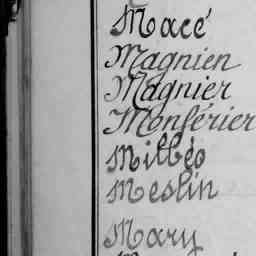 Macé
Magnien
Magnier
Monférier
Milléo
Meslin
Mary